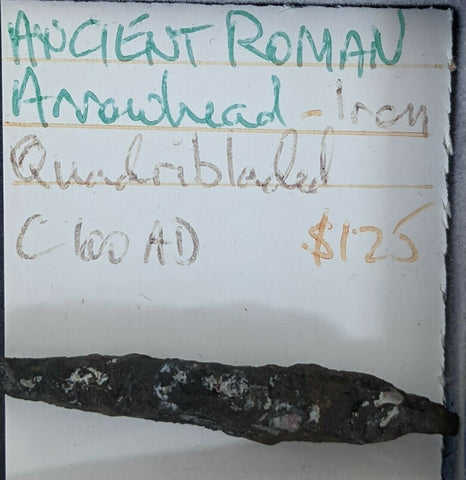 ANCIENT ROMAN
Arrowhead - Iron
Quadribladed
C 100 AD $125